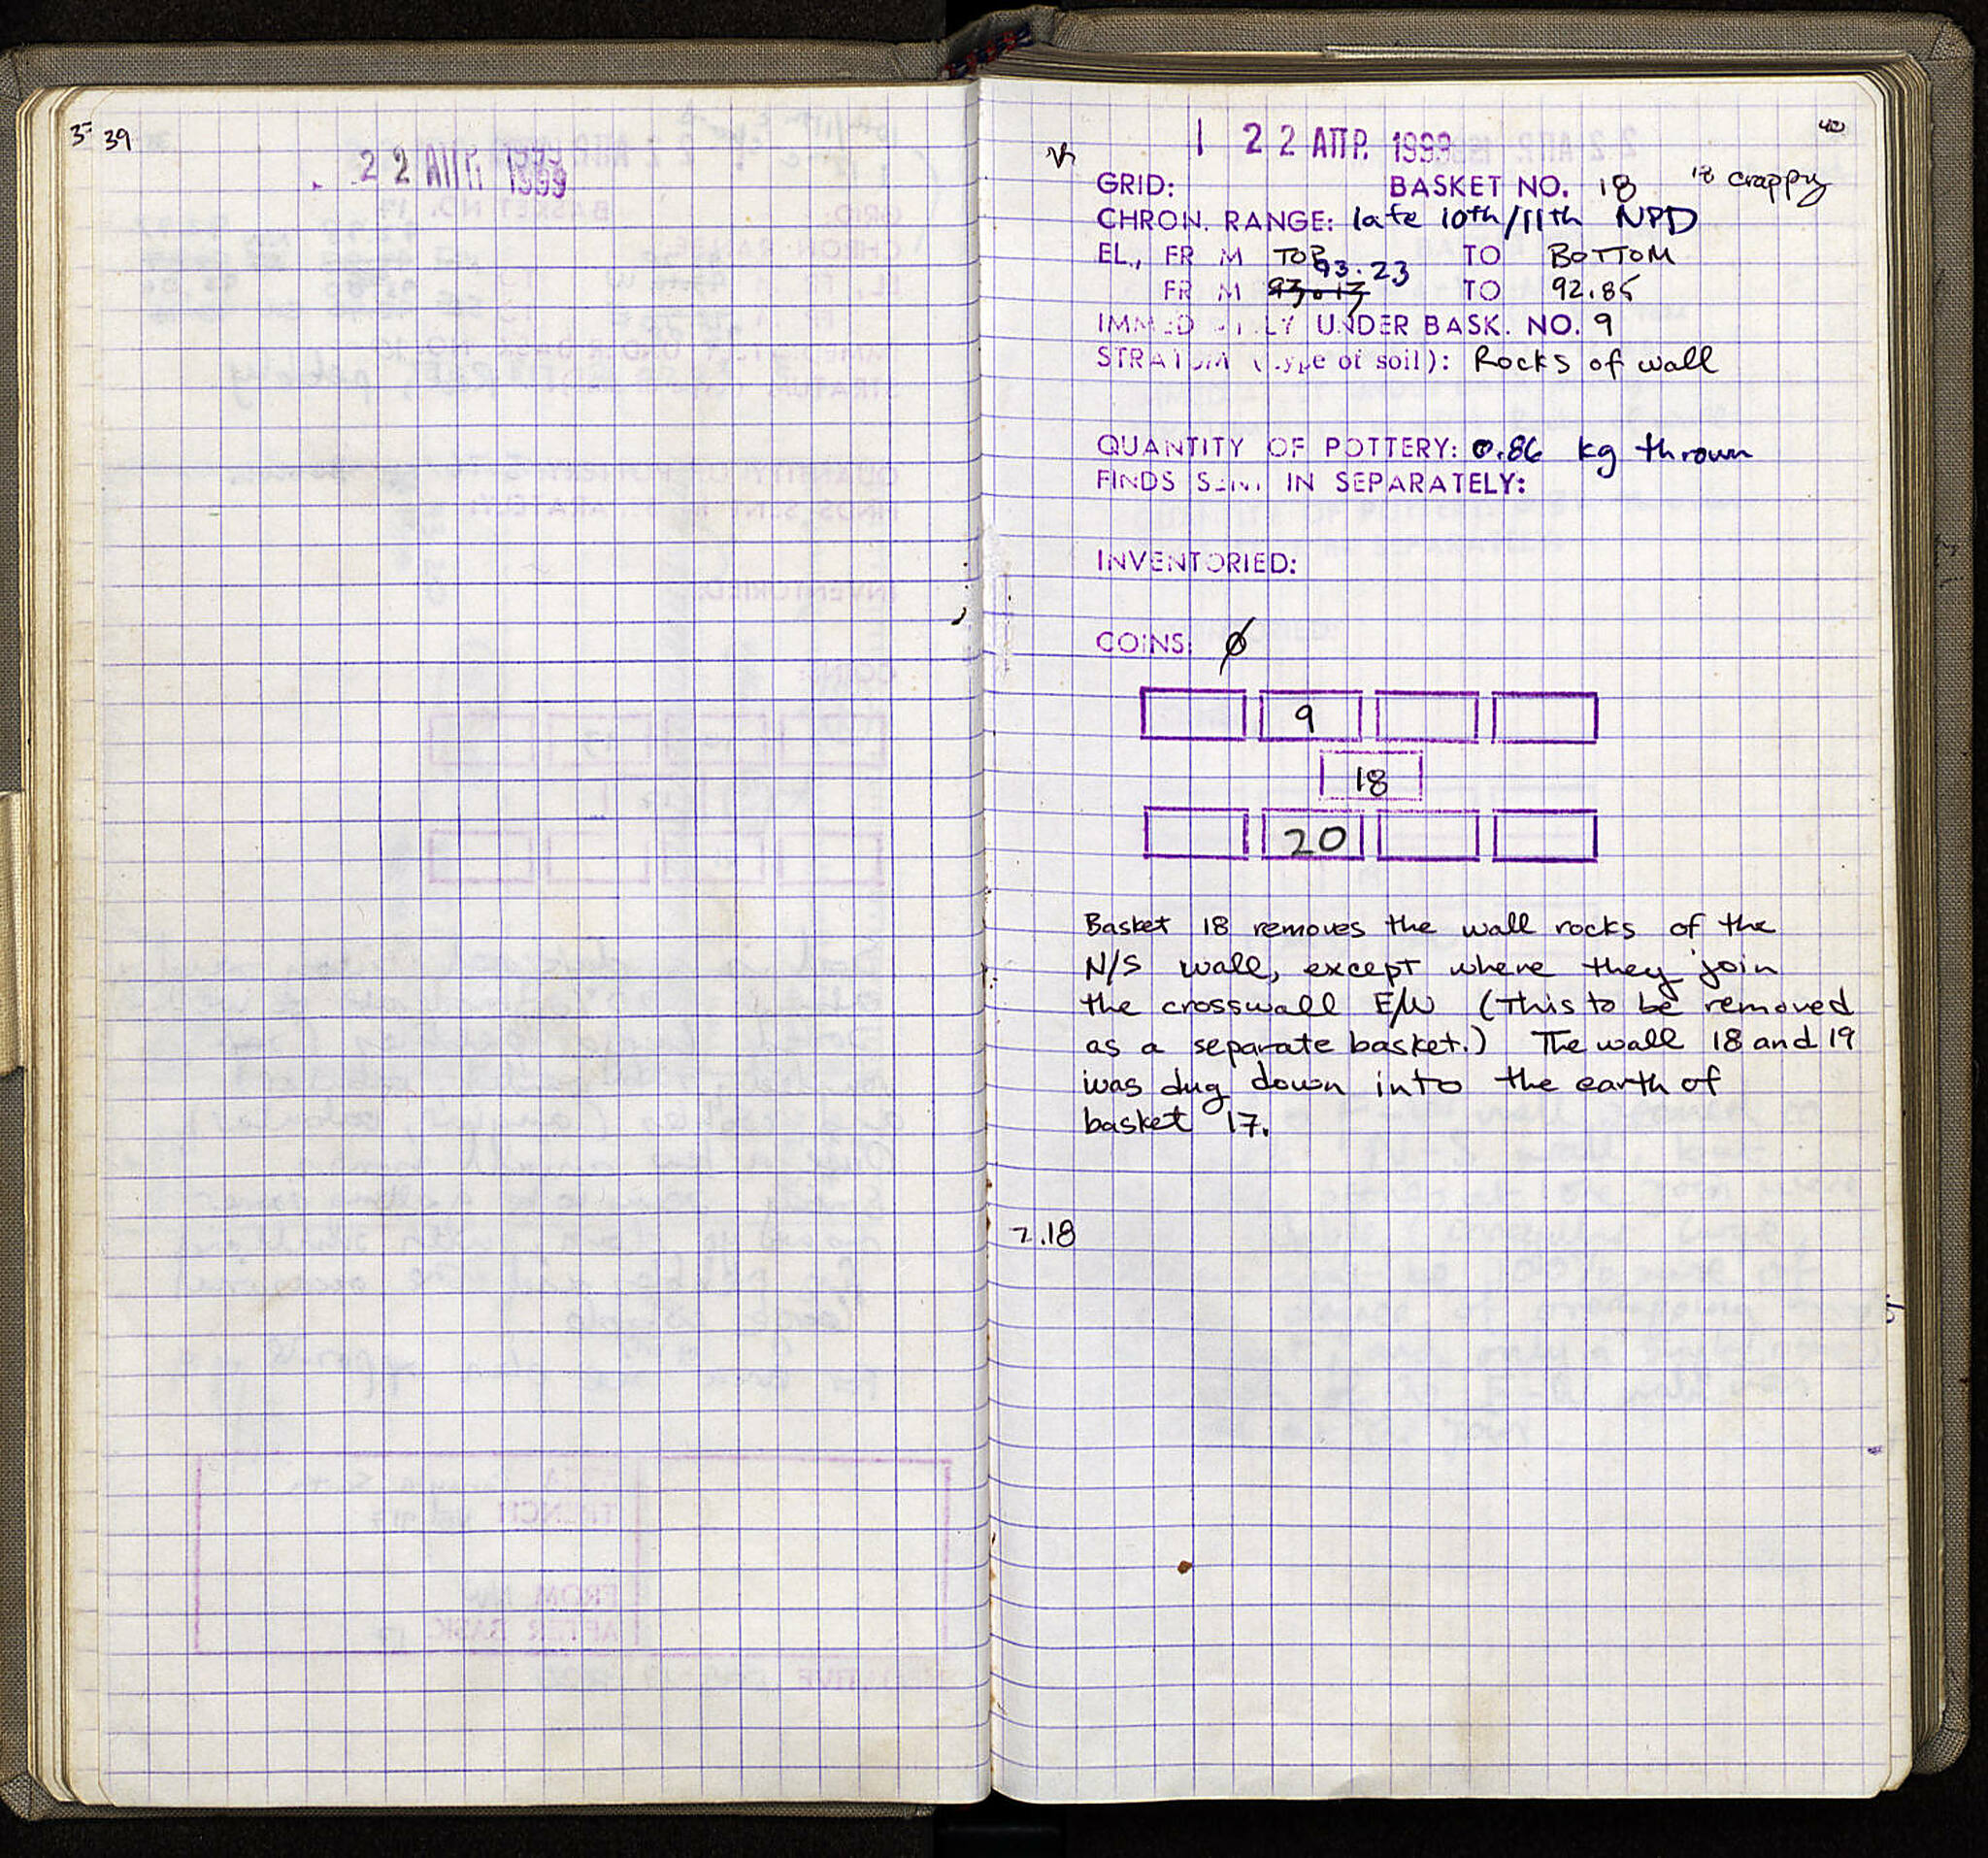 39
22 ΑΠΡ. 1999
40
22 ΑΠΡ. 1999
GRID: BASKET NO. 18 18 crappy
CHRON. RANGE: late 10th/11th NPD
EL., FR M TOP TO BOTTOM
93.23
FR M 93.17 TO 92.85
UNDER BASK. NO. 9
STRATUM (type of soil): Rocks of wall
QUANTITY OF POTTERY: 0.86 kg thrown
FINDS SENT IN SEPARATELY:
INVENTORIED:
COINS: ∅
9
18
20
Basket 18 removes the wall rocks of the
N/S wall, except where they join
the crosswall E/W (This to be removed
as a separate basket.) The wall 18 and 19
was dug down into the earth of
basket 17.
7.18